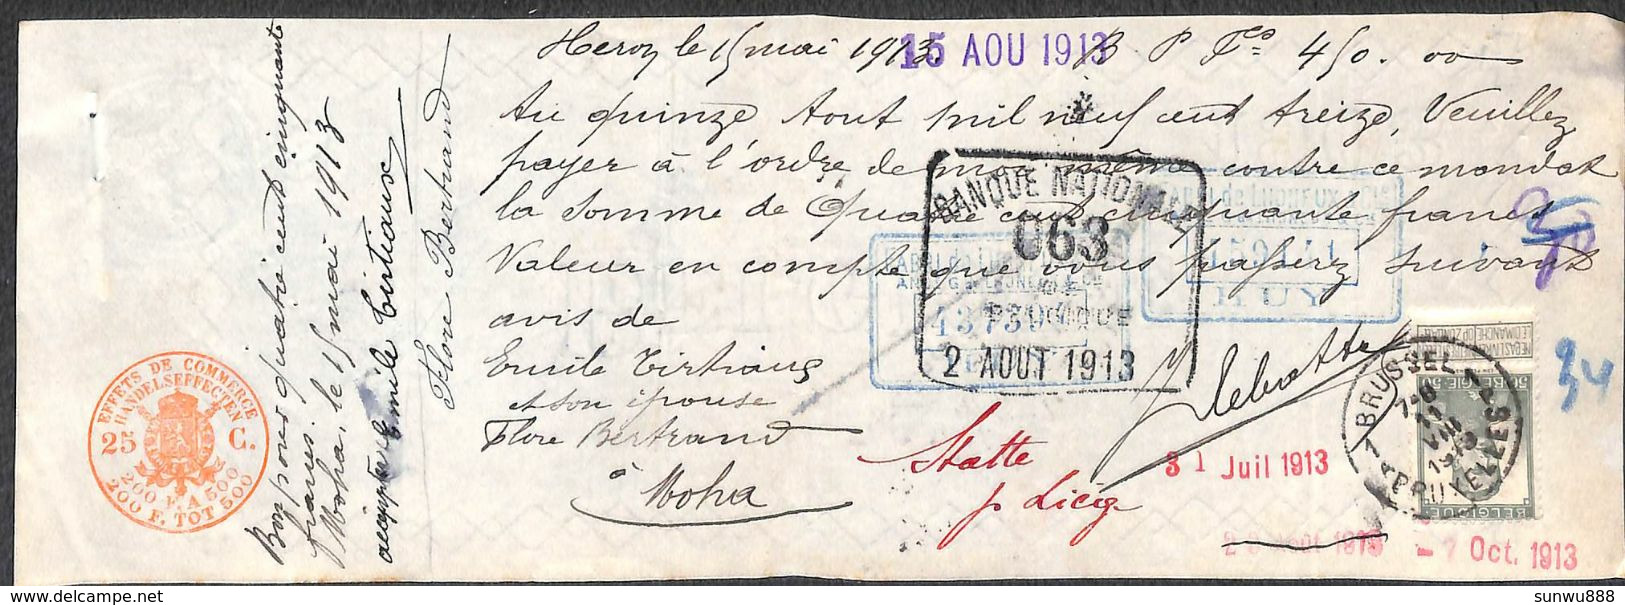 Heron le 15 mai 1913. B P Fcs 450.00
15 AOU 1913
Au quinze Aout mil neuf cent treize, Veuillez
payer à l'ordre de moi même contre ce mandat
la somme de Quatre cent cinquante francs
Valeur en compte que vous passerez suivant
avis de
Emile Tirtiaux
et son épouse
Flore Bertrand
à Moha
Bon pour quatre cents cinquante
francs.
Moha, le 15 mai 1913
Emile Tirtiaux
Flore Bertrand
EFFETS DE COMMERCE
HANDELSEFFECTEN
25 C.
200 F. À 500
200 F. TOT 500
BANQUE NATIONALE
063
BELGIQUE
2 AOUT 1913
HUY
Statte
p Liég
31 Juil 1913
- 7 Oct. 1913
34
1 BRUSSEL 1
BRUXELLES
BELGIE 50
BELGIQUE
sunwu888